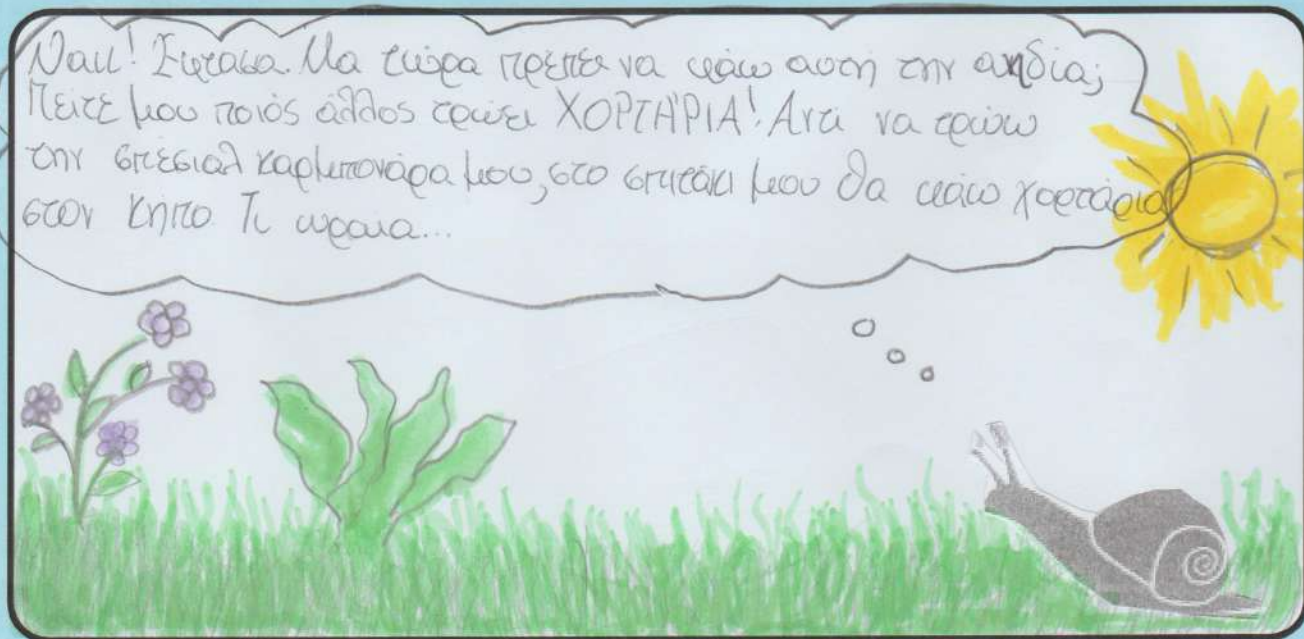 Ναιι! Έφτασα. Μα τώρα πρέπει να φάω αυτή την αηδία;
Πείτε μου ποιός άλλος τρώει ΧΟΡΤΑΡΙΑ! Αντί να τρώω
την σπέσιαλ καρμπονάρα μου, στο σπιτάκι μου θα φάω χορτάρια
στον κήπο. Τι ωραία...